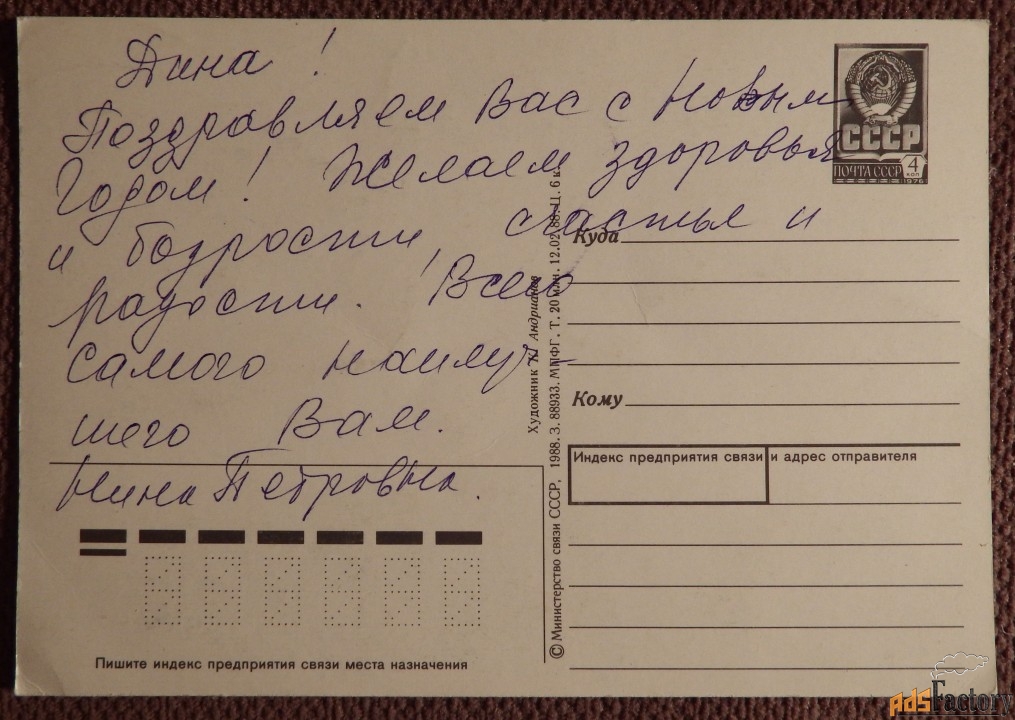 Дина!
Поздравляем Вас с Новым
Годом! Желаем здоровья
и бодрости, счастья и
радости. Всего
самого наилуч-
шего Вам.
Нина Петровна.
СССР
ПОЧТА СССР 4 КОП
1976
Куда
Кому
Индекс предприятия связи и адрес отправителя
Художник Андрианов
© Министерство связи СССР, 1988. З. 88933. МПФГ. Т. 20 млн. 12.02.88. Ц. 6 к.
Пишите индекс предприятия связи места назначения
AdsFactory